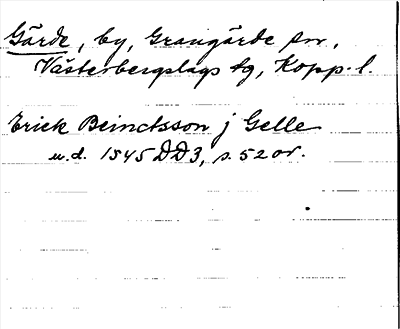 Gärde, by, Grangärde sn,
Västerbergslags tg, Kopp. l.
Erick Beinctsson j Gelle
u.d. 1545 DD3, s. 52 or.